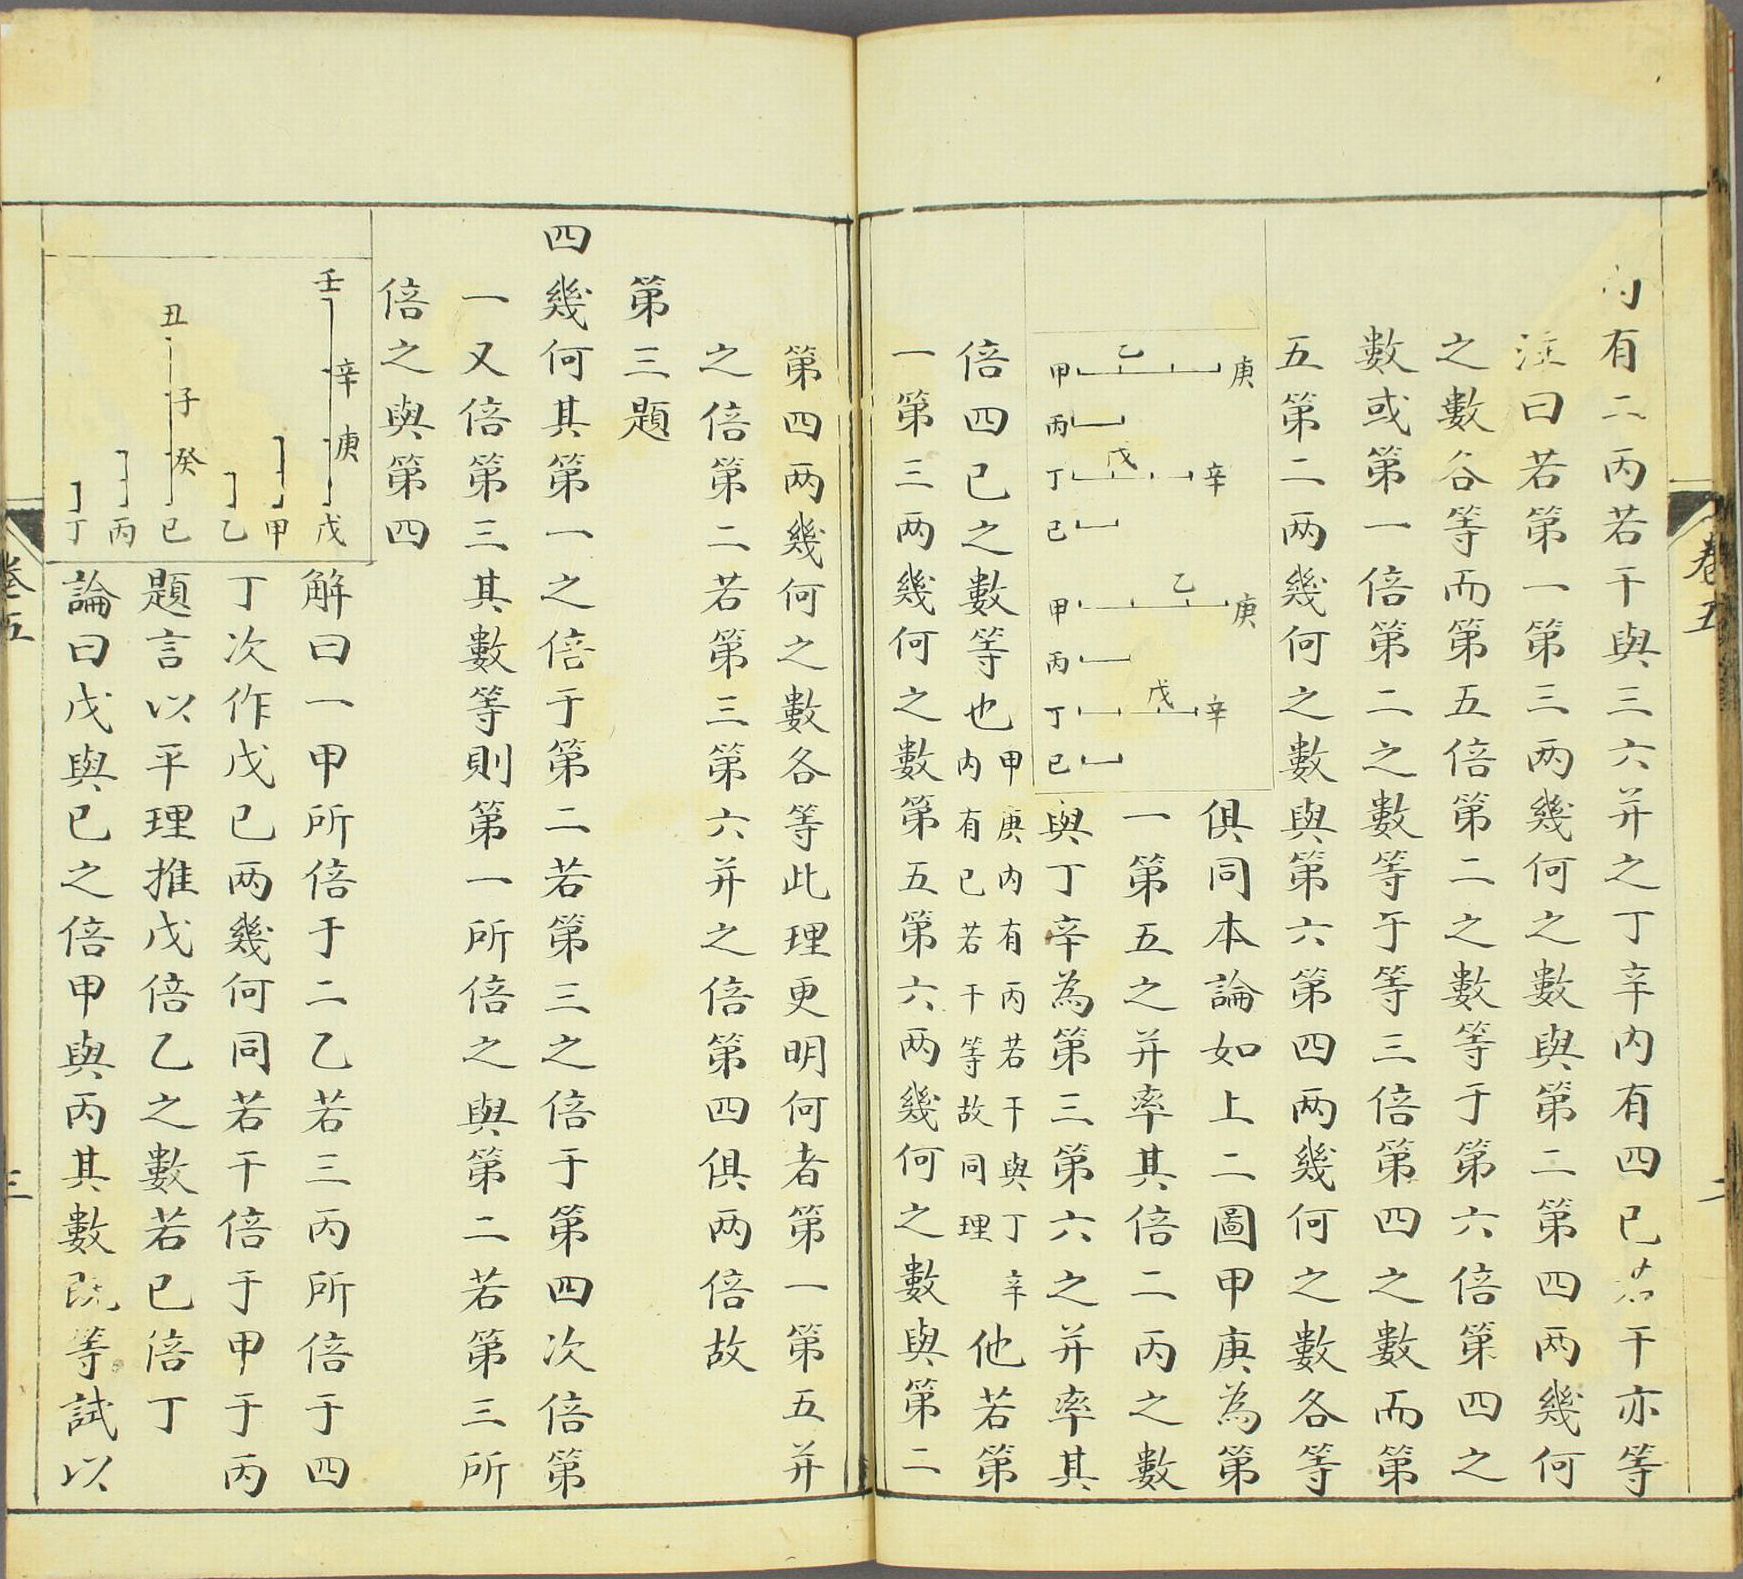 内有二丙若干與三六并之丁辛内有四已若干亦等
注曰若第一第三两幾何之數與第二第四两幾何
之數各等而第五倍第二之數等于第六倍第四之
數或第一倍第二之數等于等三倍第四之數而第
五第二两幾何之數與第六第四两幾何之數各等
俱同本論如上二圖甲庚為第
一第五之并率其倍二丙之數
與丁辛為第三第六之并率其
乙
甲 庚
丙
戊
丁 辛
已
乙
甲 庚
丙
戊
丁 辛
已
倍四已之數等也
甲庚内有丙若干與丁辛
内有已若干等故同理
他若第
一第三两幾何之數第五第六两幾何之數與第二
卷五
二
第四两幾何之數各等此理更明何者第一第五并
之倍第二若第三第六并之倍第四俱两倍故
第三題
四幾何其第一之倍于第二若第三之倍于第四次倍第
一又倍第三其數等則第一所倍之與第二若第三所
倍之與第四
壬 辛 庚 戊
甲
乙
丑 子 癸 已
丙
丁
解曰一甲所倍于二乙若三丙所倍于四
丁次作戊已两幾何同若干倍于甲于丙
題言以平理推戊倍乙之數若已倍丁
論曰戊與已之倍甲與丙其數既等試以
卷五
三